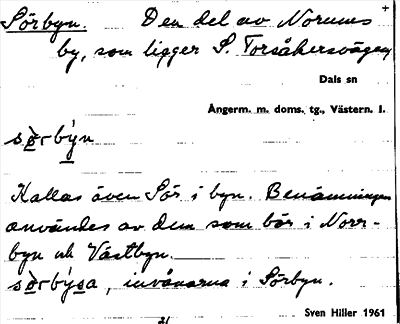 Sörbyn. Den del av Norums
by, som ligger S. Torsåkersvägen
Dals sn
Ångerm. m. doms. tg., Västern. l.
sörbyn
Kallas även Sör i byn. Benämningen
användes av dem som bor i Norr-
byn och Västbyn.
sörbysa, invånarna i Sörbyn.
Sven Hiller 1961